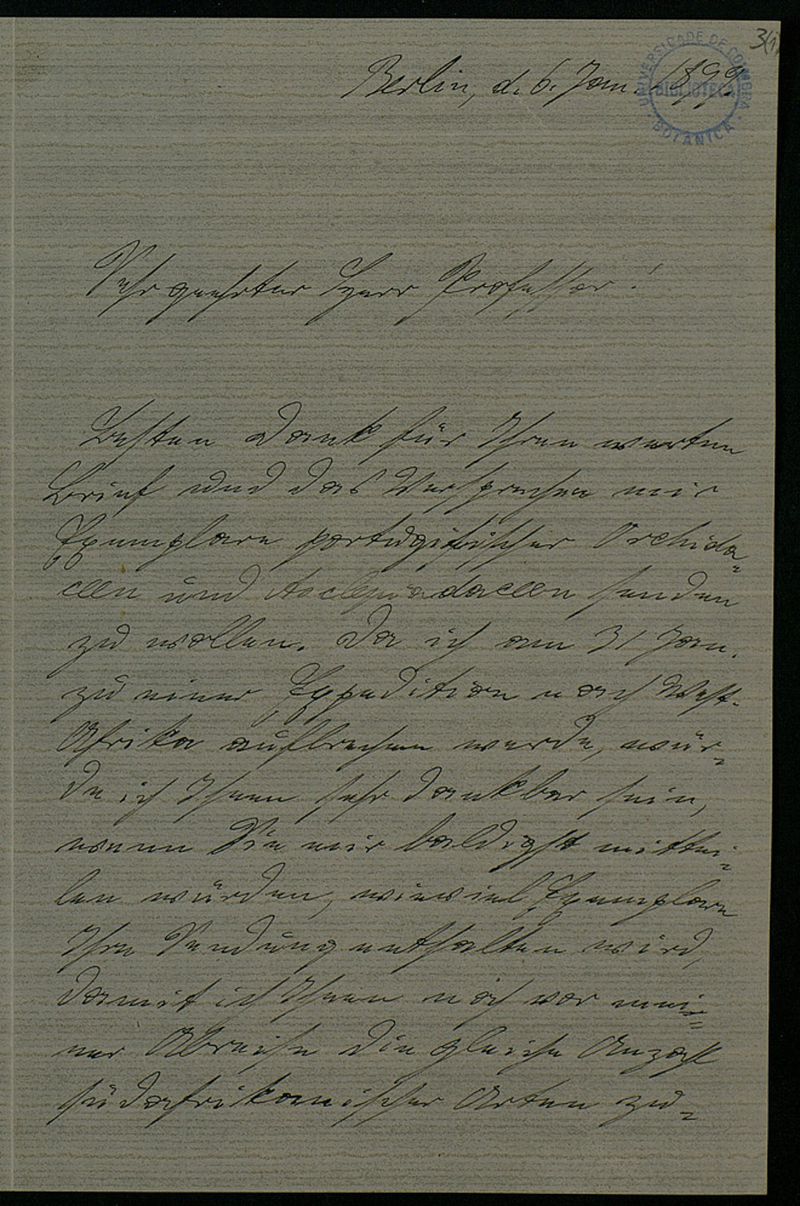 3(1)
UNIVERSIDADE DE COIMBRA
BIBLIOTECA
BOTANICA
Berlin, d. 6. Jan. 1899.
Sehr geehrter Herr Professor!
Besten Dank für Ihren werten
Brief und das Versprechen mir
Exemplare portugisischer Orchida-
ceen und Asclepiadaceen senden
zu wollen. Da ich am 31 Jan.
zu einer Expedition nach West-
Afrika aufbrechen werde, wür-
de ich Ihnen sehr dankbar sein,
wenn Sie mir baldigst mittei-
len würden, wieviel Exemplare
Ihre Sendung enthalten wird,
damit ich Ihnen noch vor mei-
ner Abreise die gleiche Anzahl
südafrikanischer Arten zu-